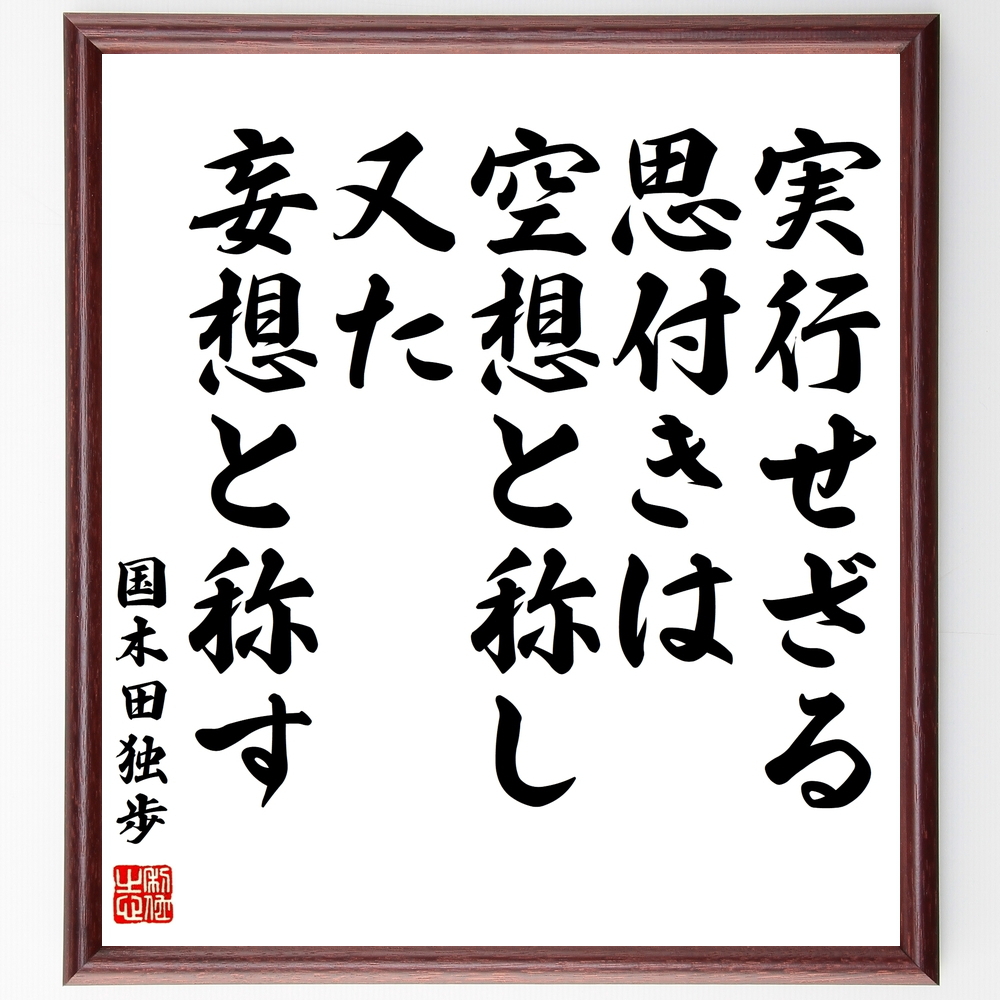 実行せざる
思付きは
空想と称し
又た
妄想と称す
国木田独歩